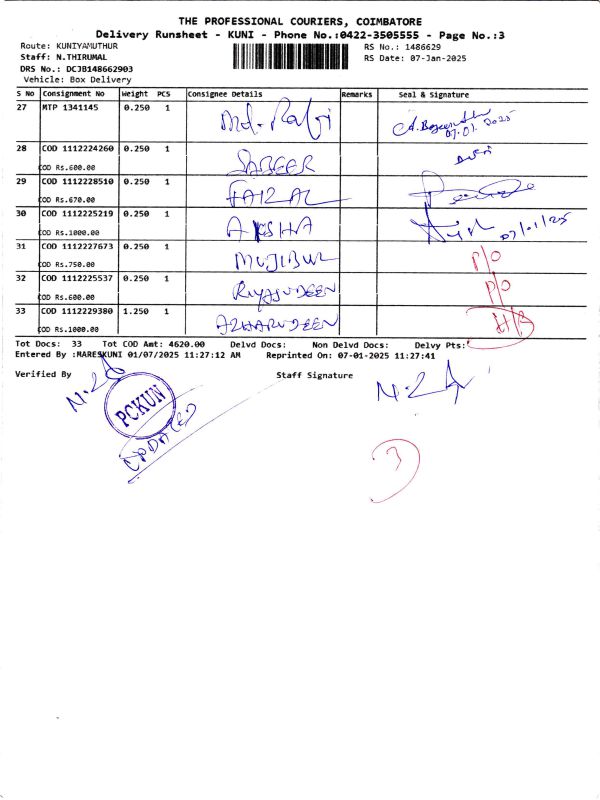 THE PROFESSIONAL COURIERS, COIMBATORE
Delivery Runsheet - KUNI - Phone No.:0422-3505555 - Page No.:3
Route: KUNIYAMUTHUR RS No.: 1486629
Staff: N.THIRUMAL RS Date: 07-Jan-2025
DRS No.: DCJB148662903
Vehicle: Box Delivery
S No Consignment No Weight PCS Consignee Details Remarks Seal & Signature
27 MTP 1341145 0.250 1 Md. Rafi 07.01.2025
28 COD 1112224260 0.250 1 SABEER
COD Rs.600.00
29 COD 1112228510 0.250 1 FAIZAL
COD Rs.670.00
30 COD 1112225219 0.250 1 AKSHA 07/01/25
COD Rs.1000.00
31 COD 1112227673 0.250 1 MUJIBUR P/O
COD Rs.750.00
32 COD 1112225537 0.250 1 RIYASUDEEN P/O
COD Rs.600.00
33 COD 1112229380 1.250 1 AZHARUDEEN
COD Rs.1000.00
Tot Docs: 33 Tot COD Amt: 4620.00 Delvd Docs: Non Delvd Docs: Delvy Pts:
Entered By :MARESKUNI 01/07/2025 11:27:12 AM Reprinted On: 07-01-2025 11:27:41
Verified By Staff Signature
PCKUN
UPDATED
3